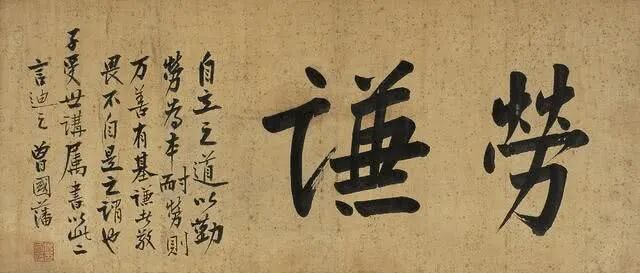 勞謙
自立之道以勤
勞為本耐勞則
萬善有基謙者敬
畏不自是之謂也
子受世講屬書以此二
言迪之 曾國藩